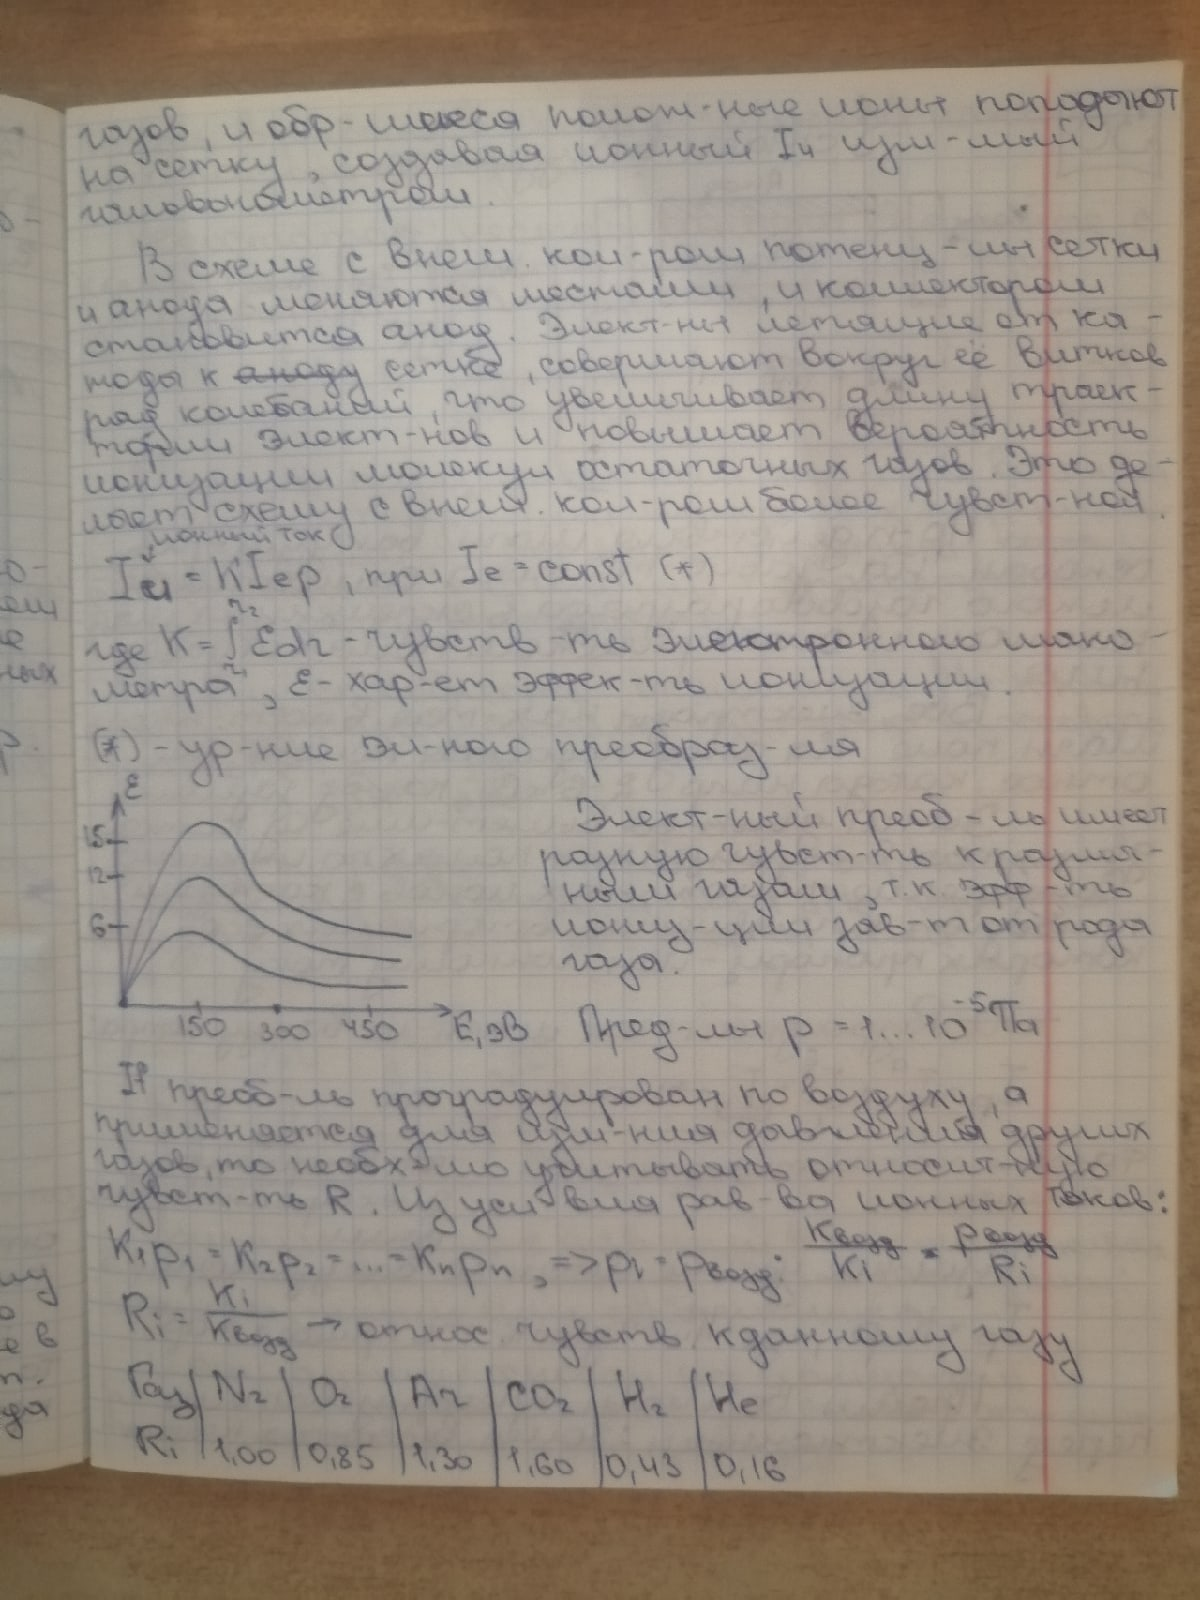 газов, и обр-шиеся полож-ные ионы попадают
на сетку, создавая ионный Iи изм-мый
гальванометром.
В схеме с внеш. кол-ром потенц-лы сетки
и анода меняются местами, и коллектором
становится анод. Элект-ны летящие от ка-
тоды к аноду сетке, совершают вокруг её витков
ряд колебаний, что увеличивает длину траек-
тории элект-нов и повышает вероятность
ионизации молекул остаточных газов. Это де-
лает схему с внеш. кол-ром более чувст-ной.
ионный ток
Iи = KIep, при Ie = const (*)
где K = ∫ r₁ r₂ Edr - чувств-ть электронного мано-
метра, ε - хар-ет эффек-ть ионизации.
(*) - ур-ние эл-ного преобраз-ля
ε
15
12
6
150 300 450 E, эВ
Элект-ный преоб-ль имеет
разную чувст-ть к различ-
ными газам, т.к. эфф-ть
иониз-ции зав-т от рода
газа.
Пред-лы p = 1...10⁻⁵ Па
If преоб-ль проградуирован по воздуху, а
применяется для изм-ния давления других
газов, то необх-мо учитывать относит-ную
чувст-ть R. Из условия рав-ва ионных токов:
K₁p₁ = K₂p₂ = ... = Kₙpₙ, => pi = pвозд. Kвозд/Ki = pвозд/Ri
Ri = Ki/Kвозд → относ. чувств. к данному газу
Газ | N₂ | O₂ | Ar | CO₂ | H₂ | He
Ri | 1,00 | 0,85 | 1,30 | 1,60 | 0,43 | 0,16